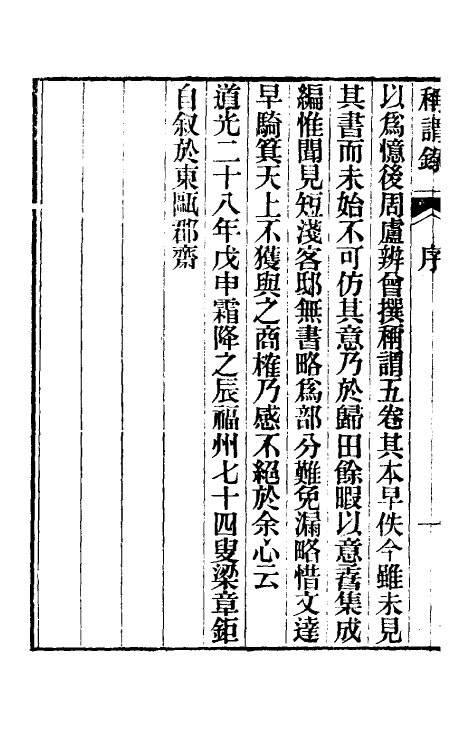 稱謂錄 序 一
以爲憶後周盧辨曾撰稱謂五卷其本早佚今雖未見
其書而未始不可仿其意乃於歸田餘暇以意蒐集成
編惟聞見短淺客邸無書略爲部分難免漏略惜文達
早騎箕天上不獲與之商榷乃感不絕於余心云
道光二十八年戊申霜降之辰福州七十四叟梁章鉅
自叙於東甌郡齋